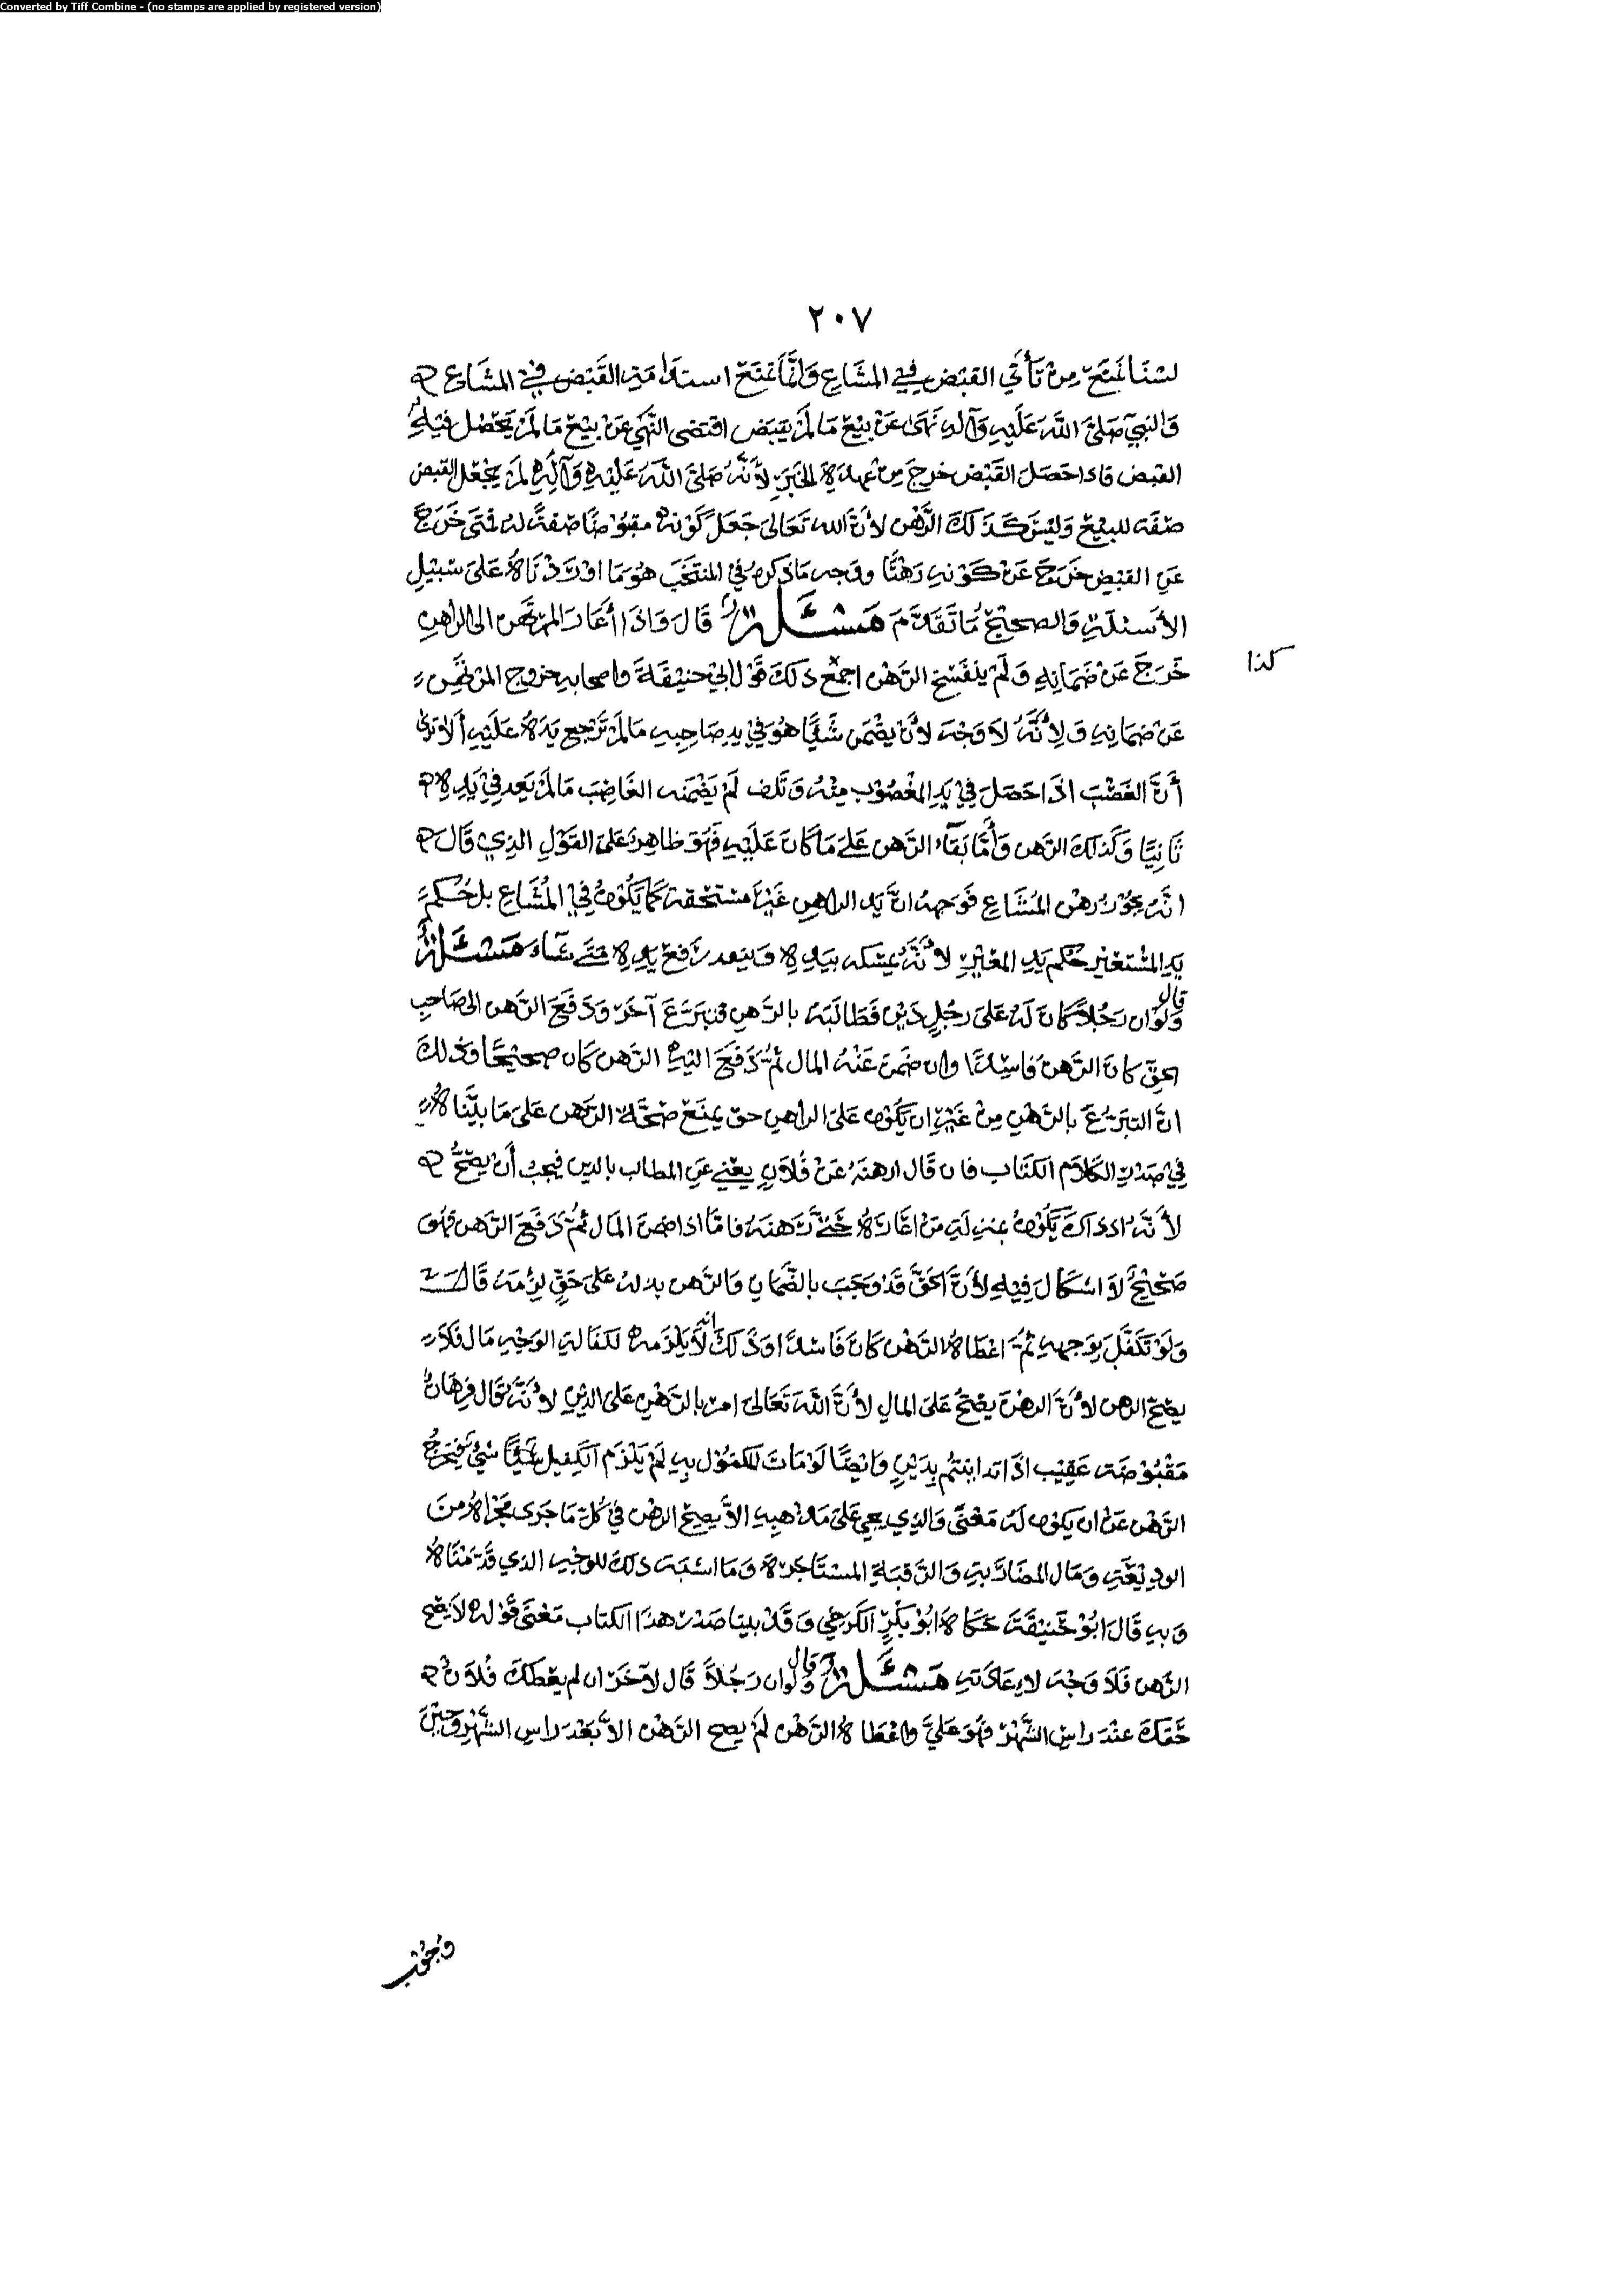 Converted by Tiff Combine - (no stamps are applied by registered version)
٢٠٧
لسنا نمنع من تأتي القبض في المشاع وانما نمنع استدامة القبض في المشاع
والنبي صلى الله عليه وآله نهى عن بيع ما لم يقبض اقتضى النهي عن بيع ما لم يحصل فيه
القبض فاذا حصل القبض خرج من عهدة الخبر لأنه صلى الله عليه وآله لم يجعل القبض
صفة للبيع وليس كذلك الرهن لأن الله تعالى جعل كونه مقبوضا صفة له فمتى خرج
عن القبض خرج عن كونه رهنا ووجه ما ذكره في المنتخب هو ما اوردناه على سبيل
الأسئلة والصحيح ما تقدم مسئلة قال واذا أعار المرتهن الى الراهن
خرج عن ضمانه ولم ينفسخ الرهن اجمع ذلك قول ابي حنيفة واصحابه خروج المرتهن
كذا
عن ضمانه ولأنه لا وجه لأن يضمن شيئا هو في يد صاحبه ما لم ترجع يده عليه ألا ترى
أن الغصب اذا حصل في يد المغصوب منه وتلف لم يضمنه الغاصب ما لم يعد في يده
ثانيا وكذلك الرهن وأما بقاء الرهن على ما كان عليه فهو ظاهر على القول الذي قال
انه يجوز رهن المشاع فوجهه ان يد الراهن غير مستحقة كما يكون في المشاع بل حكم
يد المستعير حكم يد المعير لأنه يمسكه بيده و رفع يده متى شاء مسئلة
قال ولو ان رجلا كان له على رجل دين فطالبه بالرهن فتبرع آخر ودفع الرهن الى صاحب
الحق كان الرهن فاسدا وان ضمن عنه المال ثم دفع اليه الرهن كان صحيحا وذلك
ان التبرع بالرهن من غير ان يكون على الراهن حق يمنع صحة الرهن على ما بيناه
في صدر الكلام الكتاب فان قال ارهنه عن فلان يعني عن المطالب بالدين فيجب أن يصح
لأنه اذ ذاك يكون بمنزلة من اعاره حتى رهنه فاما اذا ضمن المال ثم دفع الرهن فهو
صحيح لا اشكال فيه لأن الحق قد وجب بالضمان والرهن بدله على حق لزمه قال
ولو تكفل بوجهه ثم اعطاه الرهن كان فاسدا وذلك انه لا يلزمه لكفالة الوجه مال فلا
يصح الرهن لأن الرهن يصح على المال لأن الله تعالى امر بالرهن على الدين لأنه قال فرهان
مقبوضة عقيب اذا تداينتم بدين وايضا لو مات المكفول به لم يلزم الكفيل شيئا شيء فيخرج
الرهن عن ان يكون له معنى والذي يجي على مذهبه الا يصح الرهن في كل ما جرى مجراه من
الوديعة ومال المضاربة والرقبة المستاجرة وما اشبه ذلك للوجه الذي قدمناه
وبه قال ابو حنيفة حكاه ابو بكر الكرخي وقد بينا صدر هذا الكتاب معنى قوله لا يصح
الرهن فلا وجه لاعادته مسئلة قال ولو ان رجلا قال لآخر ان لم يعطك فلان
حقك عند راس الشهر فهو علي واعطاه الرهن لم يصح الرهن الا بعد راس الشهر وحين